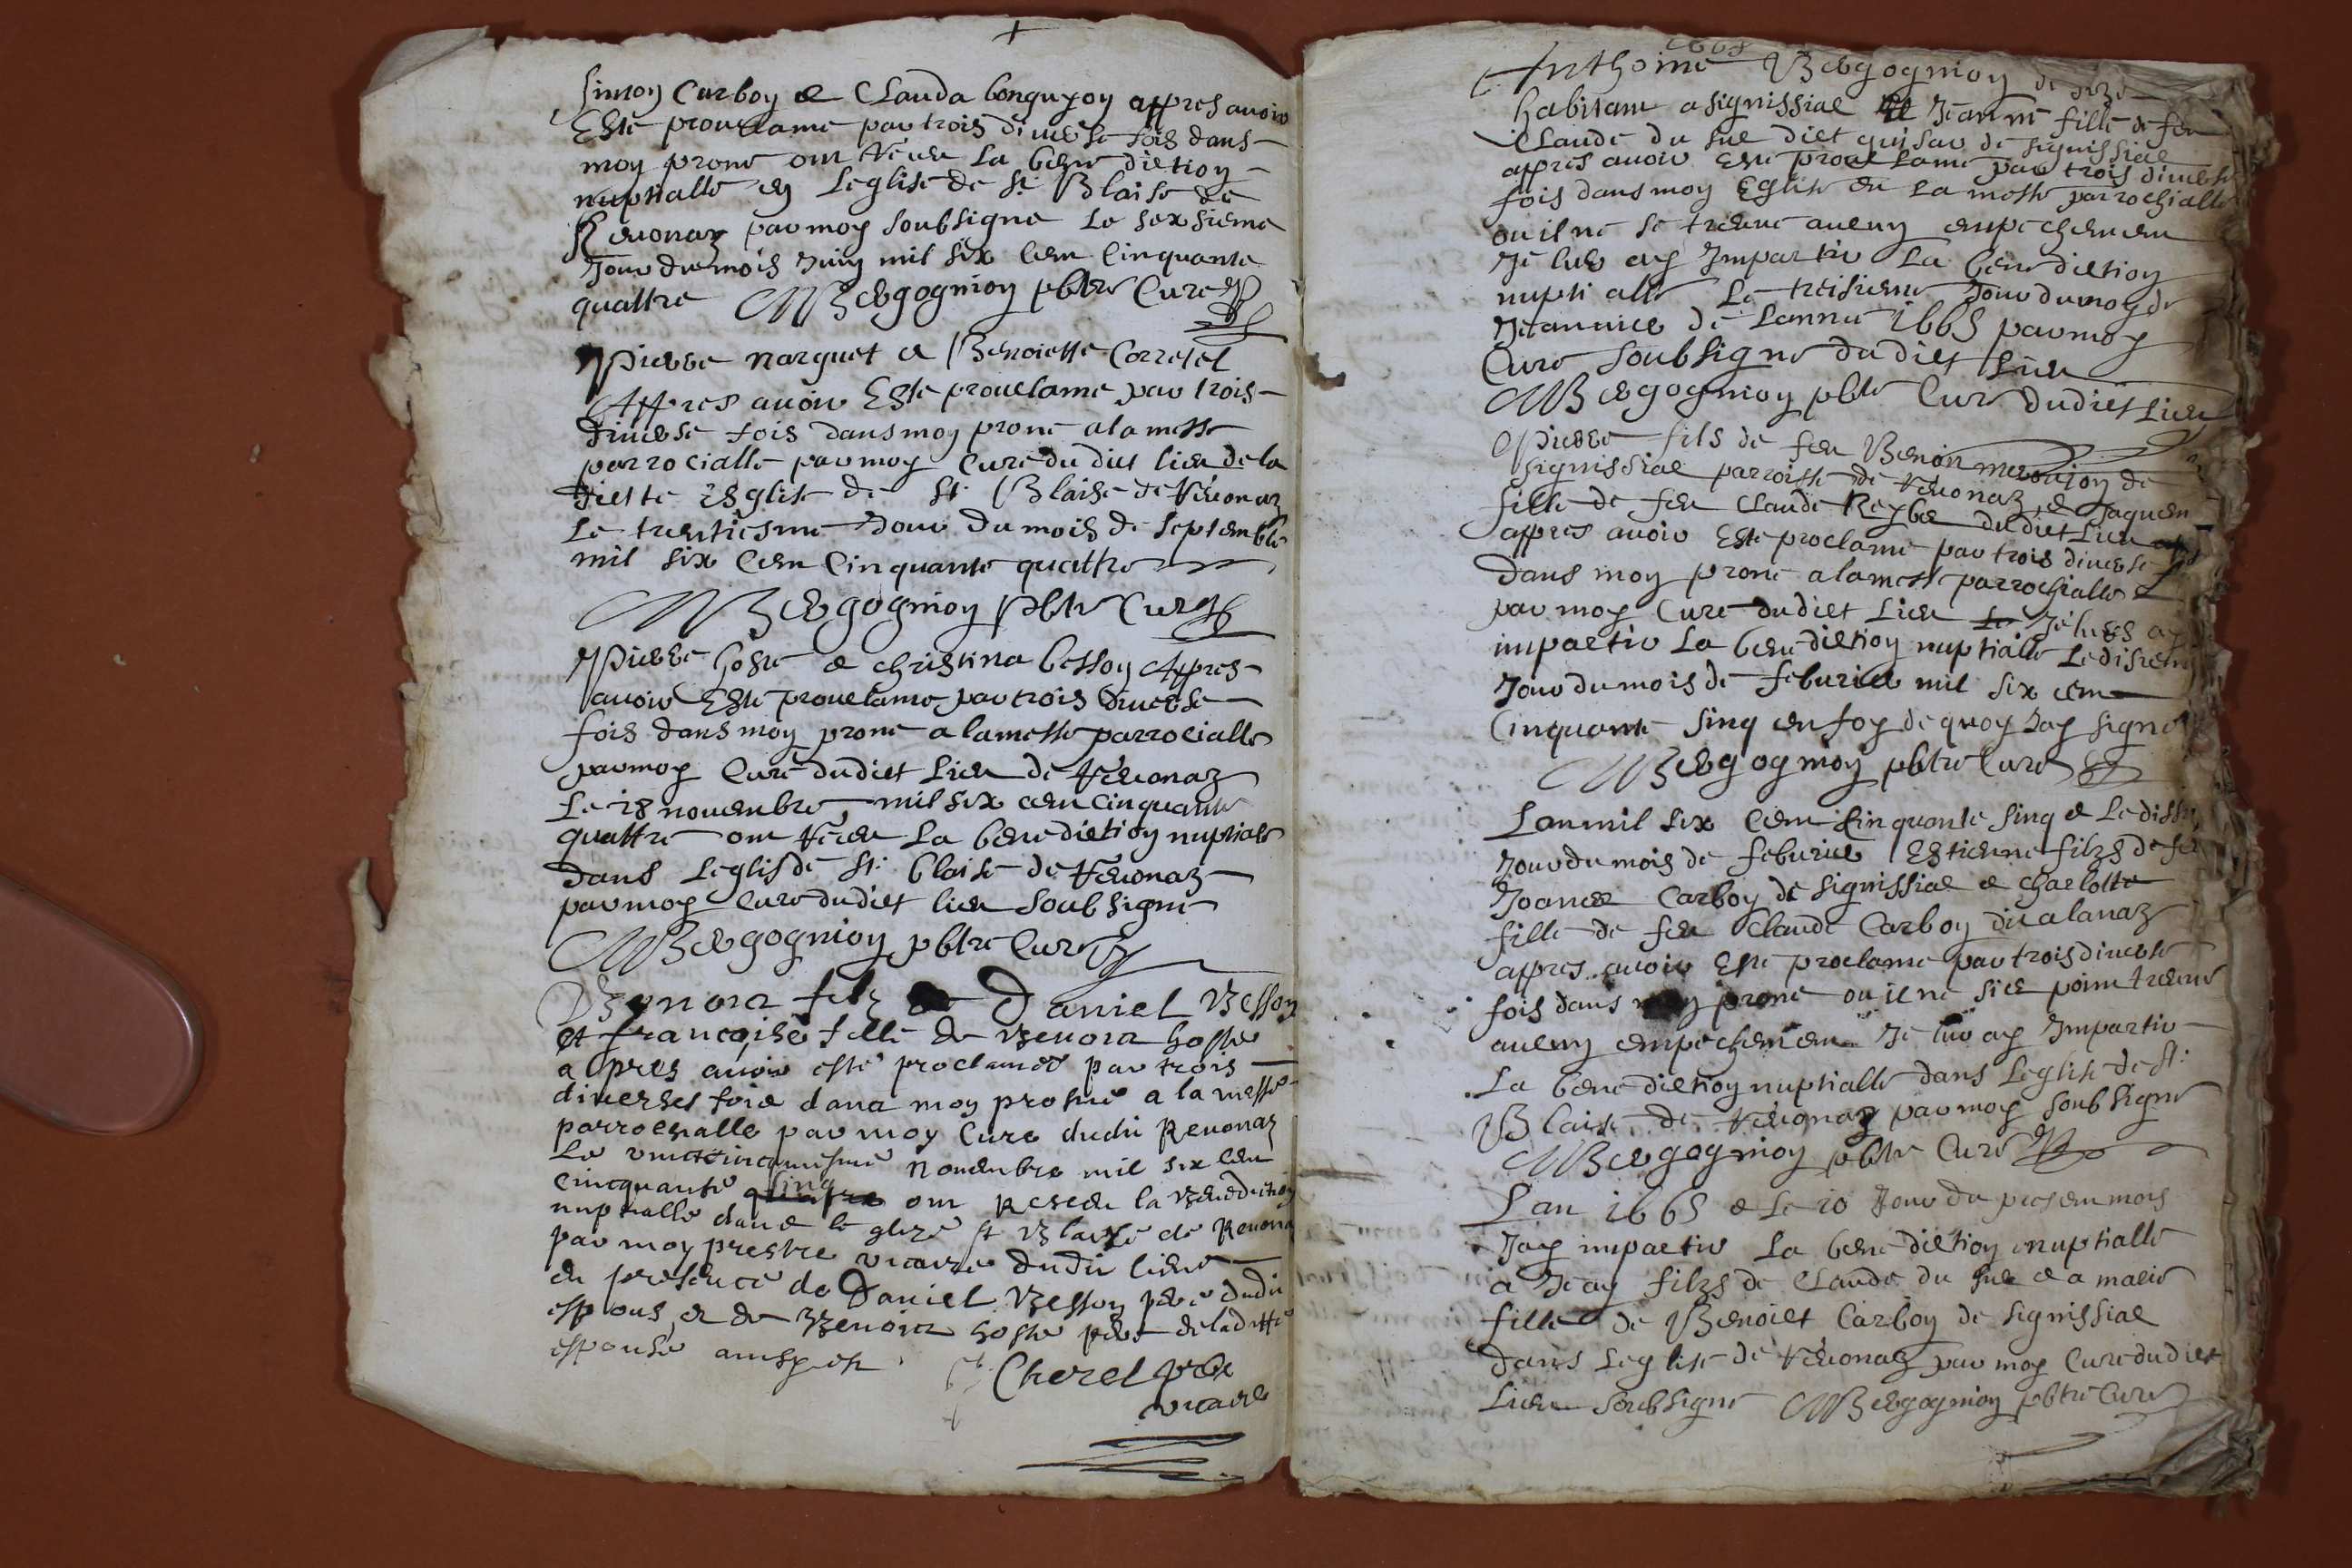 Simon Carboy & Clauda bonguyon appres avoir
Este prouclame par trois diverse fois dans
moy prone ont Receu La benediction
nuptialle en Leglise de St Blaise de
Revonaz par moy soubsigne Le sexsieme
Jour du mois Juin mil six Cent Cinquante
quattre Bergognion pbtre Cure
Pierre narguet & Benoiette Corretel
Appres avoir Este prouclame par trois
diverse fois dans moy prone a la messe
parrocialle par moy Cure du dict lieu de la
dicte Esglise de St Blaise de Revonaz
Le trentiesme Jour du mois de septembre
mil six Cent Cinquante quattre
Bergognion pbtre Cure
Pierre hoste & christina besson Appres
avoir Este prouclame par trois diverse
fois dans moy prone a la messe parrocialle
par moy Cure dudict Lieu de Revonaz
Le 28 novembre mil six cent cinquante
quattre ont Receu La benediction nuptialle
dans Leglisde St blaise de Revonaz
par moy Cure dudict lieu soubsigne
Bergognion pbtre Cure
Daniel Besson
et francoise fille de Benoict hoste
appres avoir esté proclames par trois
diverses fois dans moy prosne a la messe
parroesialle par moy Cure dudit Revonaz
Le novembre mil six cent
cincquante sinq ont Reseu la Benediction
nuptialle dans le glize st Blaise de Revonaz
par moy prestre vicaire dudit lieu
en presence de Daniel Besson pere dudit
espous et de Benoict hoste pere de laditte
espouse
Cherel pbre
vicaire
Anthoine Bergognion
habitant a signissiat & Jeanne fille de feu
Claude du sue dict de signissiat
appres avoir Este prouclame par trois diverse
fois dans moy Eglise en La messe parrochialle
ou il ne se treuve aucun empechement
Je lur ay Impartir La benediction
nuptialle Le treisieme Jour du moy de
Jeanvier de Lannee 1665 par moy
Cure soubsigne dudict Lieu
Bergognion pbtre Cure dudict Lieu
Pierre fils de feu Benoit de
signissiat parroisse de Revonaz &
fille de feu Claude dudict Lieu
appres avoir Este proclame par trois diverse
dans moy prone a la messe parrochialle
par moy Cure dudict Lieu Je lurs ay
impartir La benediction nuptialle Le disieme
Jour du mois de feburier mil six cent
Cinquante sinq en foy de quoy Jay signe
Bergognion pbtre Cure
Lan mil six Cent Cinquante sinq &
Jour du mois de feburier Estienne filzs de feu
Carboy de signissiat & charlotte
fille de feu Claude Carboy
appres avoir Este proclame par trois diverse
fois dans moy prone ou il ne sies point treuve
aucun empechement Je lur ay Impartir
La benediction nuptialle dans Leglise de St
Blaise de Revonaz par moy soubsigne
Bergognion pbtre Cure
Lan 1665 & Le 10 Jour du present mois
Jay impartir La benediction nuptialle
a Jean filzs de Claude du sue & a marie
fille de Benoict Carboy de signissiat
dans Leglise de Revonaz par moy Cure dudict
Lieu soubsigne Bergognion pbtre Cure